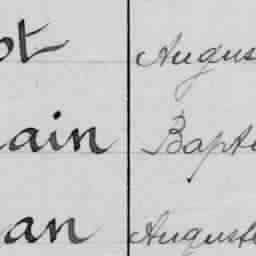 ot Augus
ain Bapti
an Auguste